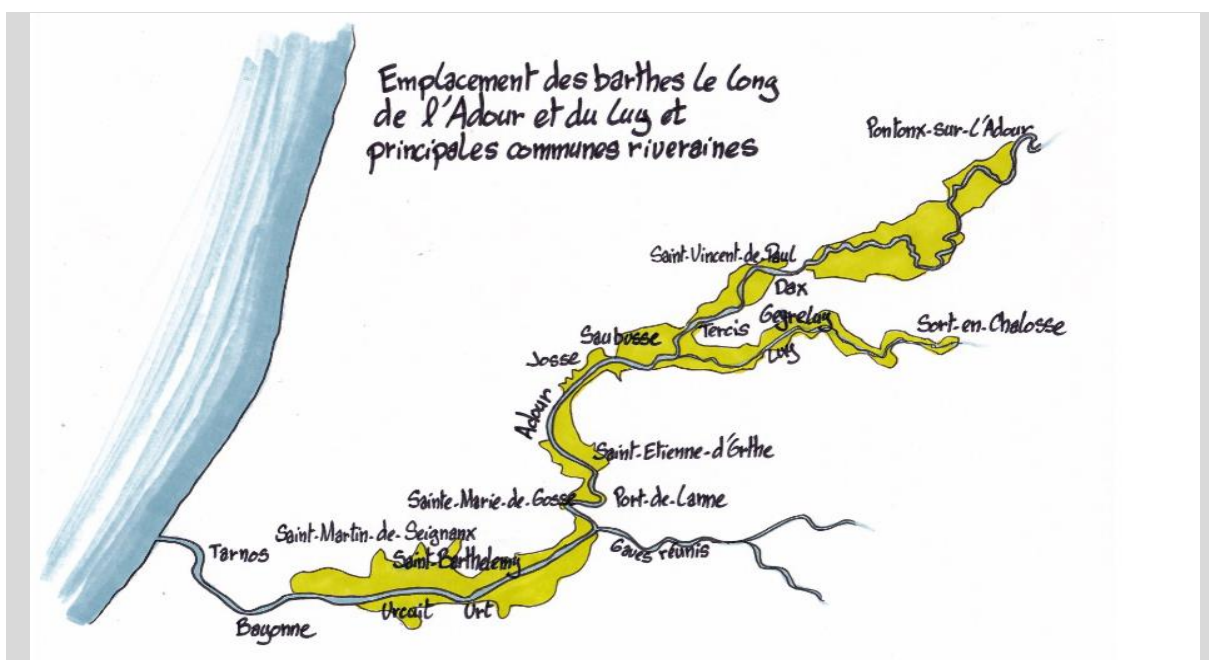 Emplacement des barthes le long
de l'Adour et du Luy et
principales communes riveraines
Pontonx-sur-l'Adour
Saint-Vincent-de-Paul
Dax
Saubusse
Tercis
Gegreluy
Sort-en-Chalosse
Josse
Luy
Adour
Saint-Etienne-d'Orthe
Sainte-Marie-de-Gosse
Port-de-Lanne
Saint-Martin-de-Seignanx
Tarnos
Saint-Barthelemy
Gaves réunis
Urcuit
Urt
Bayonne